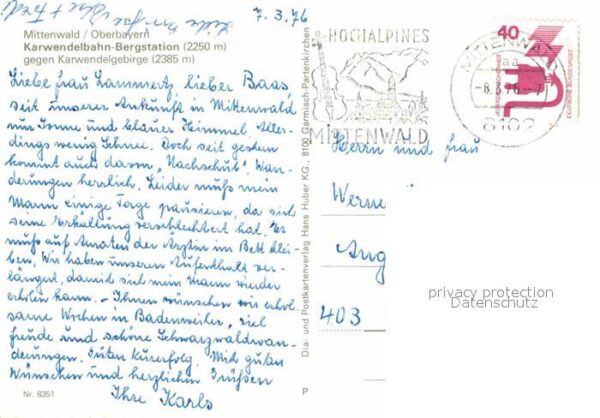 7.3.76
Mittenwald / Oberbayern
Karwendelbahn-Bergstation (2250 m)
gegen Karwendelgebirge (2385 m)
Liebe Frau Lammertz, lieber Baas,
seit unserer Ankunft in Mittenwald
nur Sonne und blauer Himmel. Aller-
dings wenig Schnee. Doch seit gestern
kommt auch davon „Nachschub". Wan-
derungen herrlich. Leider muß mein
Mann einige Tage pausieren, da sich
seine Erkältung verschlechtert hat. Er
muß auf Anraten der Ärztin im Bett blei-
ben. Wir haben unseren Aufenthalt ver-
längert, damit sich mein Mann wieder
erholen kann. - Ihnen wünschen wir erhol-
same Wochen in Badenweiler, viel
Freude und schöne Schwarzwaldwan-
derungen. Guten Kurerfolg. Mit guten
Wünschen und herzlichen Grüßen
Ihre Karls
Nr. 8351
Dia- und Postkartenverlag Hans Huber KG., 8100 Garmisch-Partenkirchen
P
HOCHALPINES
MITTENWALD
MITTENWALD
aa
-8.3.76-7
8102
40
DEUTSCHE BUNDESPOST
Herrn und Frau
Werne
Aug
403
privacy protection
Datenschutz